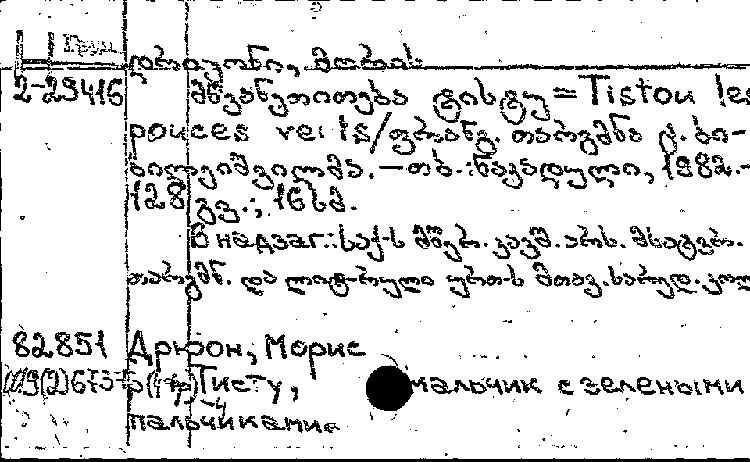 დრიუონი, მორის
2-29416 მწვანეთითება ტისტუ = Tistou les
pouces verts/ფრანგ. თარგმნა ქ. ბი-
წილვიშვილმა. – თბ.: ნაკადული, 1982. –
128 გვ.; 16 სმ.
В надзаг.: საქ-ს მწერ. კავშ. არს. მხატვრ.
თარგმნ. და ლიტ-რული ურთ-ს მთავ. სარედ. კოლ
82851 Дрюон, Морис
Тисту, мальчик с зелеными
пальчиками